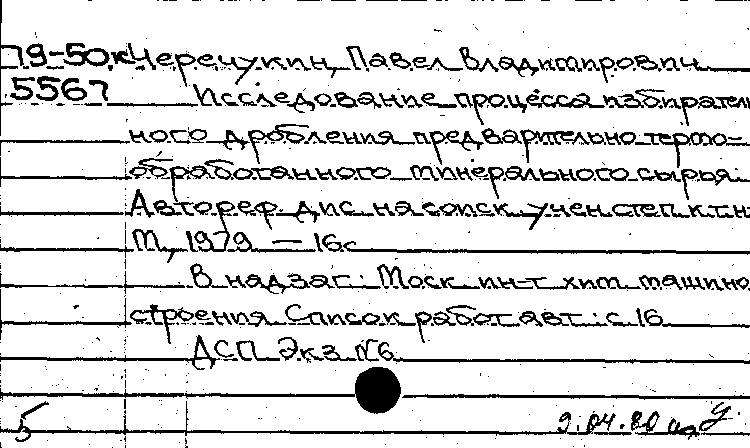 79-50к Черечукин, Павел Владимирович
5567 Исследование процесса избиратель
ного дробления предварительно термо-
обработанного минерального сырья.
Автореф дис на соиск учен степ к.т.н
М, 1979 — 16с
В надзаг: Моск ин-т хим машино
строения Список работ авт: с 16
ДСП Экз №6
5 9.04.80